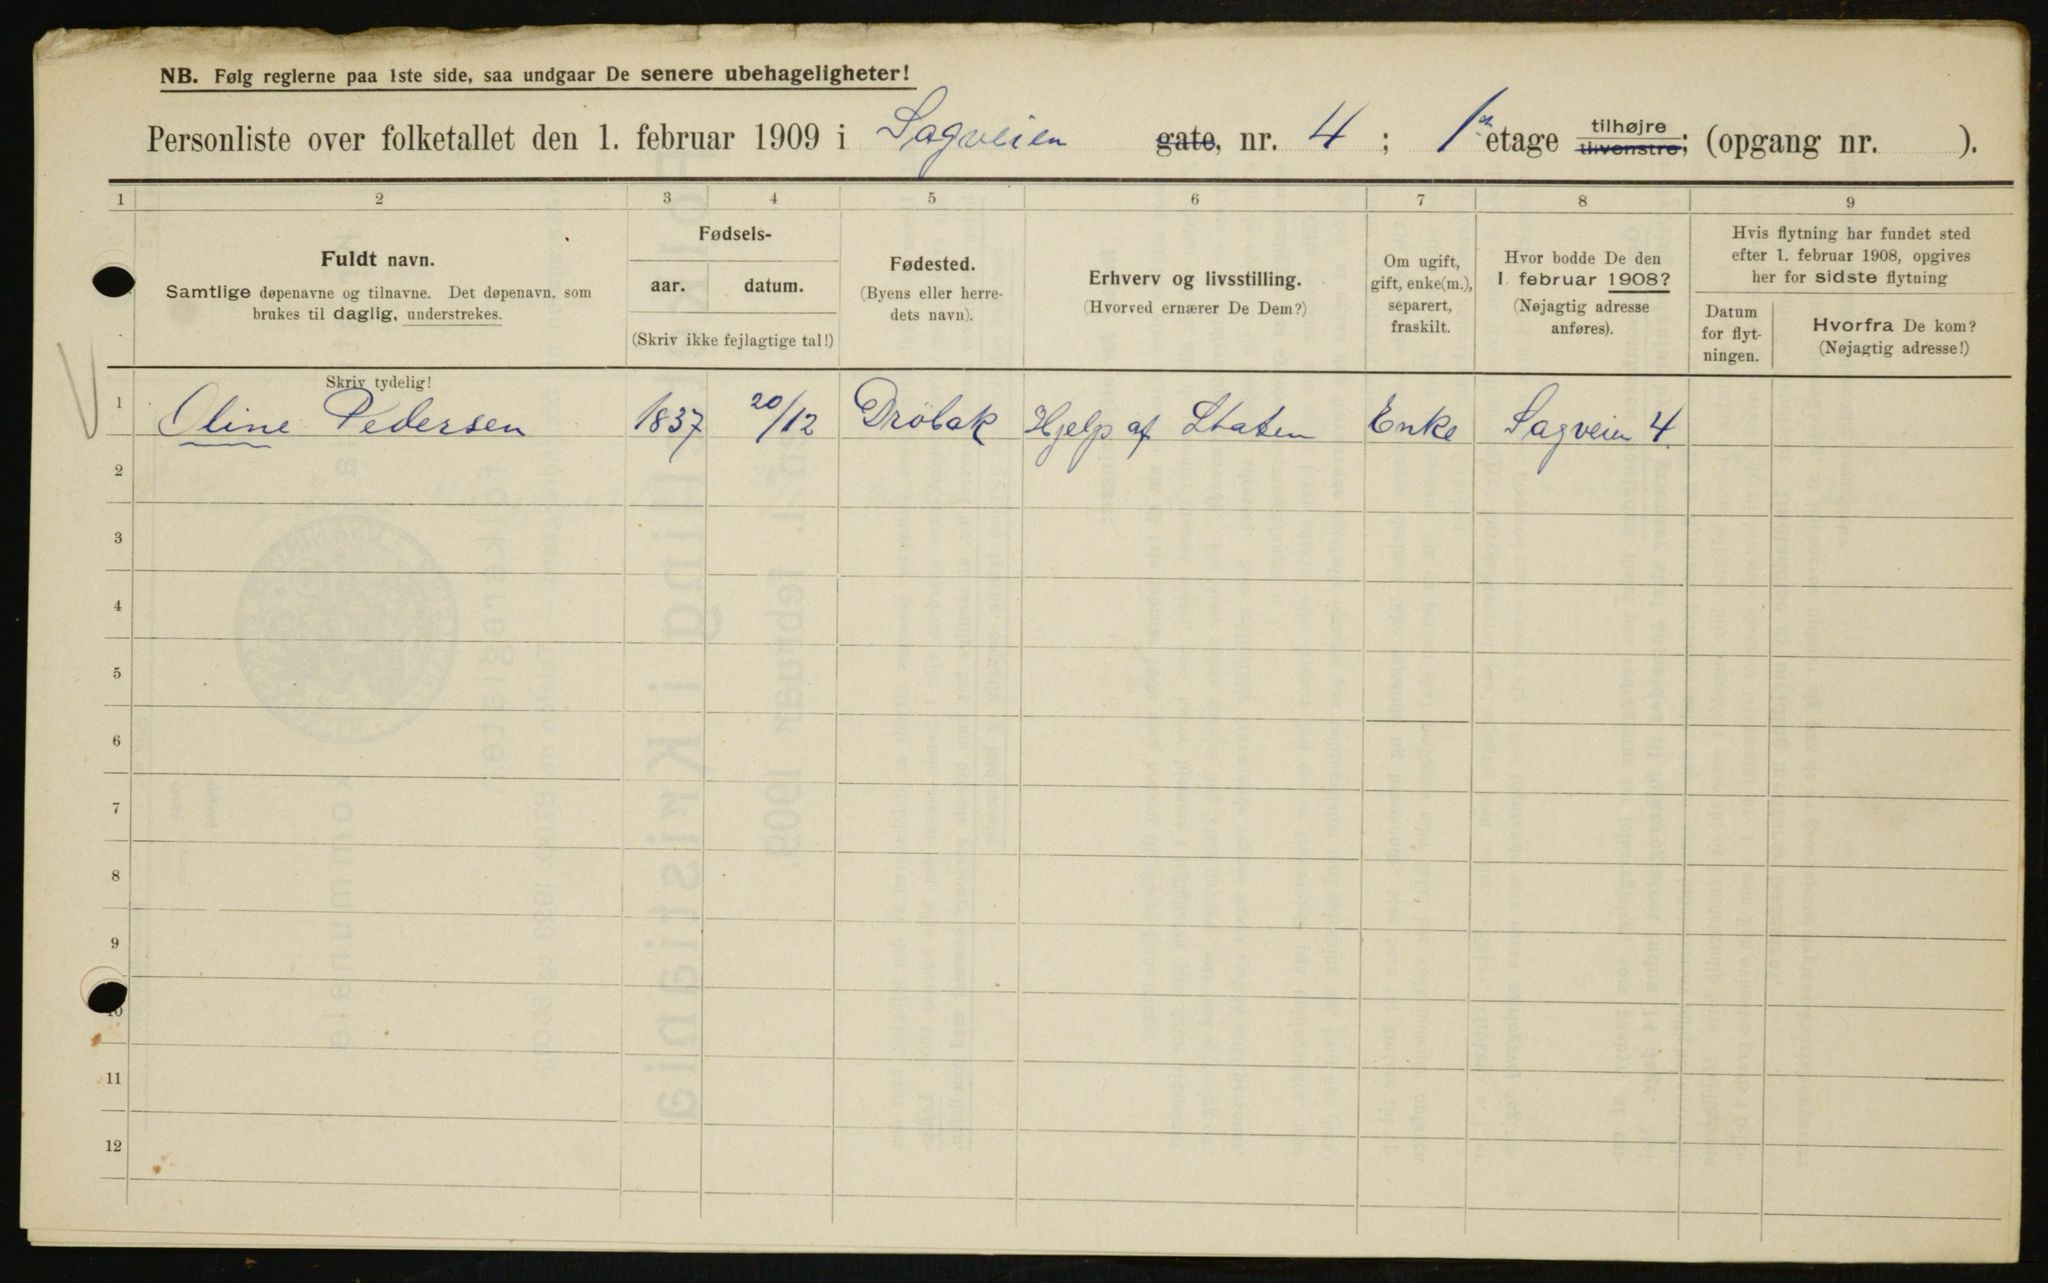 NB. Følg reglerne paa 1ste side, saa undgaar De senere ubehageligheter!
Personliste over folketallet den 1. februar 1909 i Sagveien gate, nr. 4; 1 etage tilhøjre tilvenstre; (opgang nr. ).
1 2 3 4 5 6 7 8 9
Fuldt navn.
Samtlige døpenavne og tilnavne. Det døpenavn, som
brukes til daglig, understrekes.
Fødsels-
aar. datum.
(Skriv ikke fejlagtige tal!)
Fødested.
(Byens eller herre-
dets navn).
Erhverv og livsstilling.
(Hvorved ernærer De Dem?)
Om ugift,
gift, enke(m.),
separert,
fraskilt.
Hvor bodde De den
1. februar 1908?
(Nøjagtig adresse
anføres).
Hvis flytning har fundet sted
efter 1. februar 1908, opgives
her for sidste flytning
Datum
for flyt-
ningen.
Hvorfra De kom?
(Nøjagtig adresse!)
Skriv tydelig!
1 Oline Pedersen 1837 20/12 Drøbak Hjelp af Staten Enke Sagveien 4
2
3
4
5
6
7
8
9
10
11
12